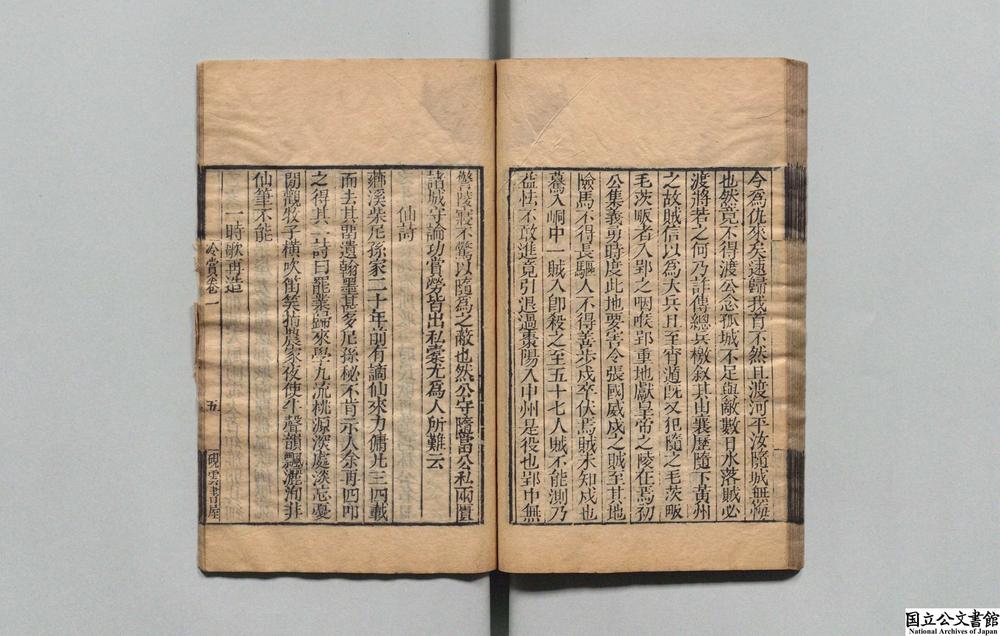 今為仇來矣速歸我肯不然且渡河平汝隨城無恆
也然竟不得渡公念孤城不足與敵數日水落賊必
渡將若之何乃詐傳總兵檄敘其由襄歷隨下黃州
之故賊信以為大兵且至宵遁旣又犯隨之毛茨畈
毛茨畈者入郢之咽喉郢重地獻皇帝之陵在焉初
公集義勇時度此地要害令張國威戍之賊至其地
險馬不得長驅人不得善步戍卒伏焉賊未知戍也
驀入峒中一賊入卽殺之至五十七人賊不能測乃
益怯不敢進竟引退過棗陽入申州是役也郢中無
警陵寢不驚以隨為之蔽也然公守隨當公私兩匱
諸城守論功賞勞皆出私橐尤為人所難云
仙詩
蘄溪柴尼孫家二十年前有謫仙來力傭凡三四載
而去其畱遺翰墨甚多尼孫秘不肯示人余再四叩
之得其一詩曰罷業歸來學九流桃源深處淡忘憂
閒觀牧子橫吹笛笑指農家夜使牛聲韻飄灑洵非
仙筆不能
一時歌再造
冷賞卷一
五
硯雲書屋
国立公文書館
National Archives of Japan